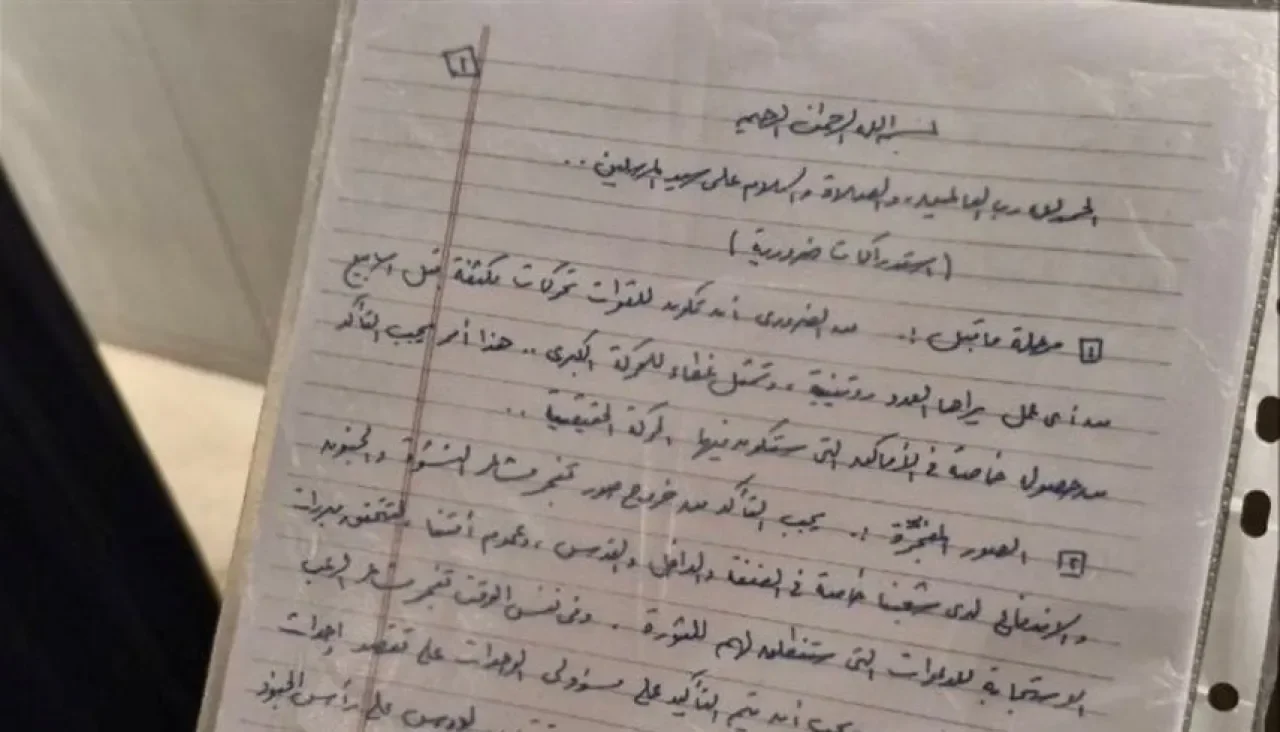 ١
بسم الله الرحمن الرحيم
الحمد لله رب العالمين، والصلاة والسلام على سيد المرسلين ..
(استدراكات ضرورية)
١ مرحلة ما قبل :. من الضروري أن تكون للقوات تحركات مكثفة قبل أسابيع
من أي عمل يراها العدو روتينية، وتمثل غطاء للحركة الكبرى .. هذا أمر يجب التأكد
من حصوله خاصة في الأماكن التي ستكون فيها الحركة الحقيقية ..
٢ الصور المفجّرة :. يجب التأكد من خروج صور تفجر مشاعر النشوة والجنون
والاندفاع لدى شعبنا خاصة في الضفة والداخل والقدس، وعموم أمتنا لتتحقق مبررات
الاستجابة للدعوات التي ستنطلق لهم للثورة. وفي نفس الوقت تفجر مشاعر الرعب
يجب أن يتم التأكيد على مسؤولي الوحدات على تقصد إحداث
على رأس الجنود